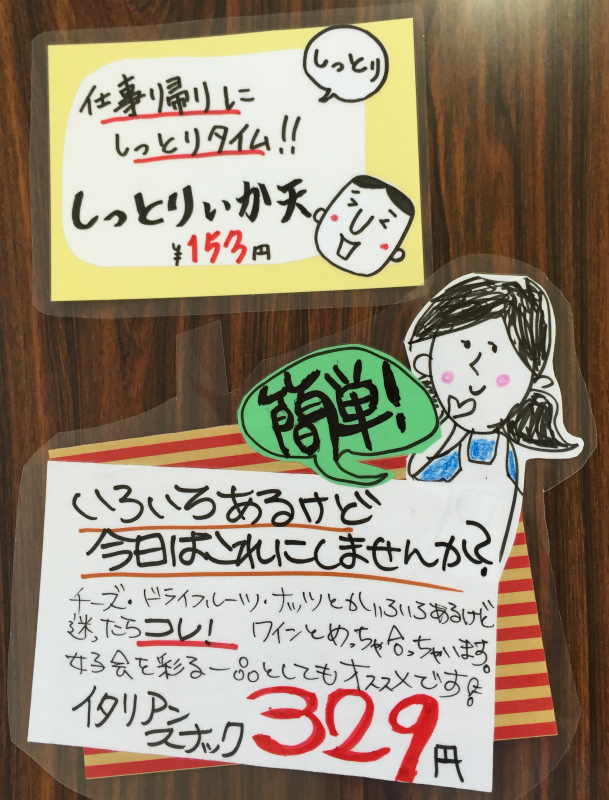 しっとり
仕事り帰りに
しっとりタイム!!
しっとりいか天
¥153円
簡単!
いろいろあるけど
今日はこれにしませんか?
チーズ・ドライフルーツ・ナッツとかいろいろあるけど
迷ったらコレ! ワインとめっちゃ合っちゃいます。
女子会を彩る一品としてもオススメです!!
イタリアン
スナック 329円